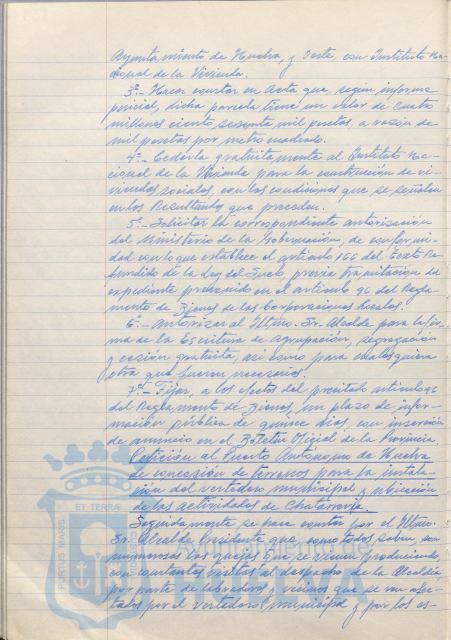 Ayuntamiento de Huelva, y Oeste, con Instituto Na-
cional de la Vivienda.
3º.- Hacer constar en Acta que, según informe
pericial, dicha parcela tiene un valor de cuatro
millones ciento sesenta mil pesetas, a razón de
mil pesetas por metro cuadrado.
4º.- Cederla gratuitamente al Instituto Na-
cional de la Vivienda para la construcción de vi-
viendas sociales, con las condiciones que se señalan
en los Resultandos que preceden.
5º.- Solicitar la correspondiente autorización
del Ministerio de la Gobernación, de conformi-
dad con lo que establece el artículo 166 del Texto Re-
fundido de la Ley del Suelo, previa tramitación del
expediente prevenido en el artículo 96 del Regla-
mento de Bienes de las Corporaciones Locales.
6º.- Autorizar al Iltmo. Sr. Alcalde para la fir-
ma de la Escritura de agrupación, segregación
y cesión gratuita, así como para cualesquiera
otra que fueren necesarios.
7º.- Fijar, a los efectos del precitado artículo 96
del Reglamento de Bienes, un plazo de infor-
mación pública de quince días, con inserción
de anuncio en el Boletín Oficial de la Provincia.
Petición al Puerto Autónomo de Huelva
de concesión de terrenos para la instala-
ción del vertedero municipal y ubicación
de las actividades de Chatarrería.
Seguidamente se hace constar por el Iltmo.
Sr. Alcalde Presidente que, como todos saben, son
numerosas las quejas que se vienen produciendo,
con constantes visitas al despacho de la Alcaldía,
por parte de labradores y vecinos que se ven afec-
tados por el vertedero municipal y por los es-
ET TERRA
PORTUS MARIS
HUELVA